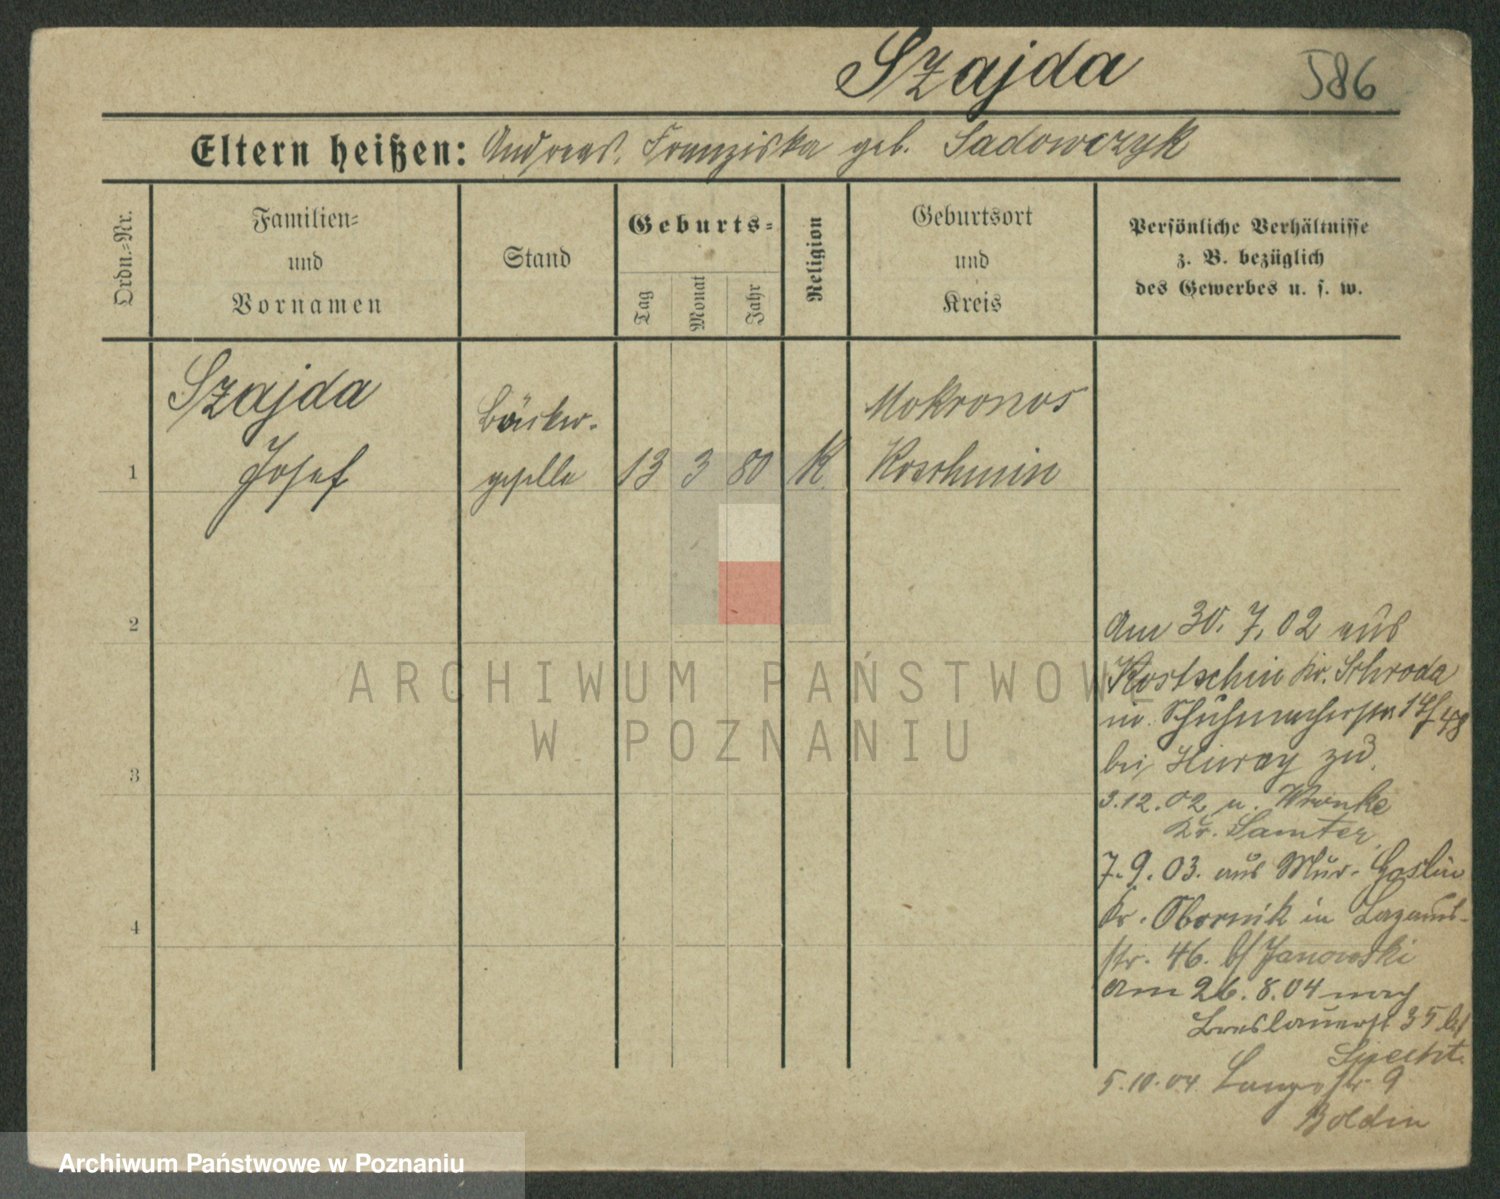 Szajda 586
Eltern heißen: Andreas, Franziska geb. Sadowczyk
Ordn.-Nr.
Familien-
und
Vornamen
Stand
Geburts-
Tag
Monat
Jahr
Religion
Geburtsort
und
Kreis
Persönliche Verhältnisse
z. B. bezüglich
des Gewerbes u. s. w.
Szajda
Josef
Bäcker-
geselle
1
13 3 80 K
Mokronos
Koschmin
2
3
4
Am 30. 7. 02 aus
Kostschin Kr. Schroda
in Schuhmacherstr.
bei zu.
3.12.02 n. Wronke
Kr. Samter
7. 9. 03. aus Mur. Goslin
Kr. Obornik in
str. 46. b/ Janowski
Am 26. 8. 04 nach
Breslauerst 35 b/
Specht.
5.10.04 Langestr. 9
Boldin
ARCHIWUM PAŃSTWOWE
W POZNANIU
Archiwum Państwowe w Poznaniu